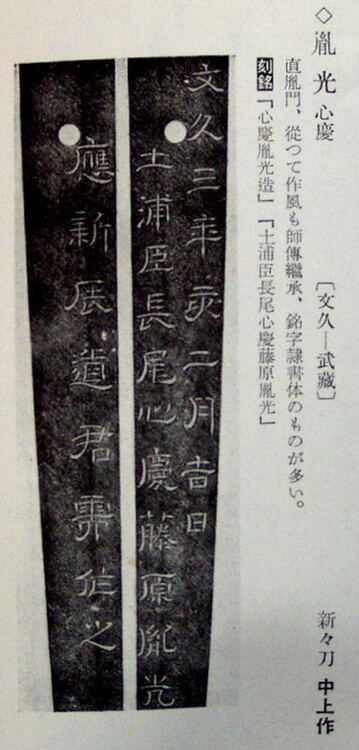 ◇胤光 心慶 〔文久―武藏〕 新々刀 中上作
直胤門、從つて作風も師傳繼承、銘字隷書体のものが多い。
刻銘「心慶胤光造」「土浦臣長尾心慶藤原胤光」
文久三年亥二月吉日
土浦臣長尾心慶藤原胤光
應新居道君需作之